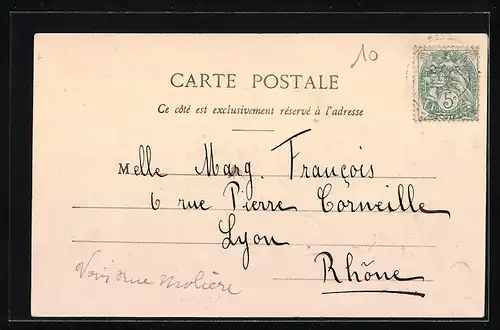 10
CARTE POSTALE
5c
Ce côté est exclusivement réservé à l'adresse
Melle Marg. François
6 rue Pierre Corneille
Lyon
Rhône
rue Molière